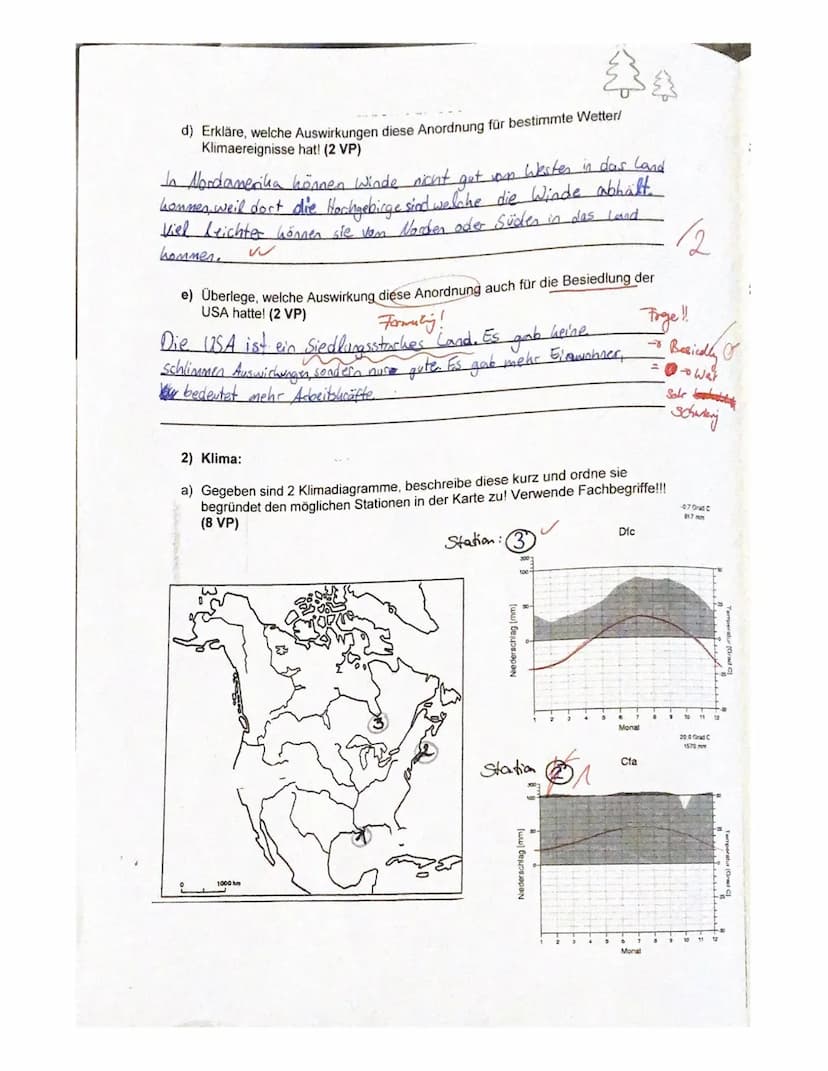 d) Erkläre, welche Auswirkungen diese Anordnung für bestimmte Wetter/
Klimaereignisse hat! (2 VP)
In Nordamerika können Winde nicht gut vom Westen in das Land
kommen, weil dort die Hochgebirge sind welche die Winde abhält.
Viel leichter können sie vom Norden oder Süden in das Land
kommen.
/2
e) Überlege, welche Auswirkung diese Anordnung auch für die Besiedlung der
USA hatte! (2 VP)
Frage!!
Die USA ist ein Siedlungsstarkes Land. Es gab keine
schlimmen Auswirkungen, sondern nur gute. Es gab mehr Einwohner,
bedeutet mehr Arbeitskräfte.
→ War
Sehr
2) Klima:
a) Gegeben sind 2 Klimadiagramme, beschreibe diese kurz und ordne sie
begründet den möglichen Stationen in der Karte zu! Verwende Fachbegriffe!!!
(8 VP)
-0.7 Grad C
917 mm
Station: 3
Dfc
300
100
50
0
Niederschlag [mm]
Temperatur [Grad C]
1 2 3 4 5 6 7 8 9 10 11 12
Monat
3
2
1
0 1000 km
20.0 Grad C
1570 mm
Station 2 1
Cfa
300
100
50
0
Niederschlag [mm]
Temperatur [Grad C]
1 2 3 4 5 6 7 8 9 10 11 12
Monat